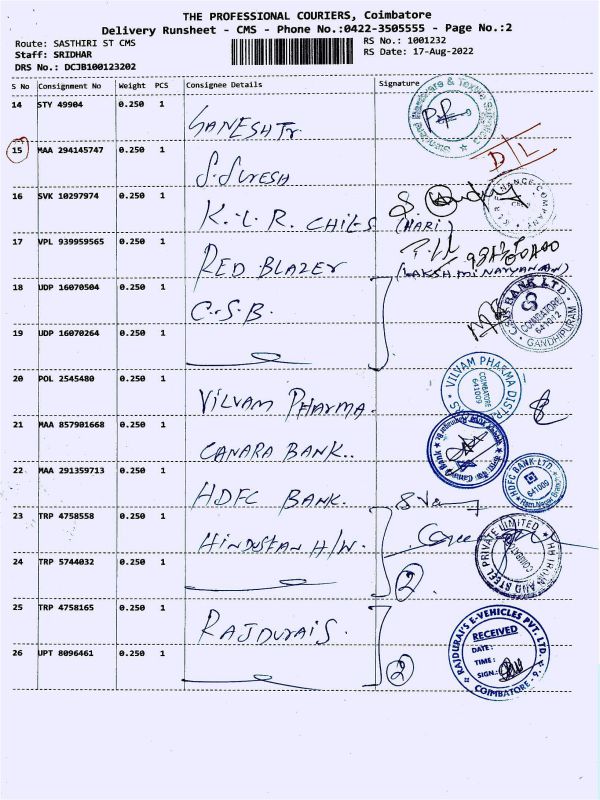 THE PROFESSIONAL COURIERS, Coimbatore
Delivery Runsheet - CMS - Phone No.:0422-3505555 - Page No.:2
Route: SASTHIRI ST CMS
RS No.: 1001232
Staff: SRIDHAR
RS Date: 17-Aug-2022
DRS No.: DCJB100123202
S No Consignment No Weight PCS Consignee Details Signature
14 STY 49904 0.250 1 GANESH Tr
15 MAA 294145747 0.250 1 S. SURESH D/L
16 SVK 10297974 0.250 1 K.L.R. CHITS (HARI)
FINANCE COMPANY
17 VPL 939959565 0.250 1 RED BLAZER (LAKSHMINARYANAN)
18 UDP 16070504 0.250 1 C.S.B.
CSB BANK LTD. COIMBATORE 641012 GANDHIPURAM
19 UDP 16070264 0.250 1
20 POL 2545480 0.250 1 VILVAM PHARMA.
VILVAM PHARMA DISTR COIMBATORE 641009
21 MAA 857901668 0.250 1 CANARA BANK.
Canara Bank
22 MAA 291359713 0.250 1 HDFC BANK.
HDFC BANK LTD. 641009 Ram Nagar
23 TRP 4758558 0.250 1 HINDUSTAN H/W.
IRON AND STEEL PRIVATE LIMITED
24 TRP 5744032 0.250 1 2
25 TRP 4758165 0.250 1 RAJDURAIS.
RAJDURAI'S E-VEHICLES PVT. LTD.
RECEIVED
DATE:
TIME:
SIGN:
COIMBATORE - 9.
26 UPT 8096461 0.250 1 2